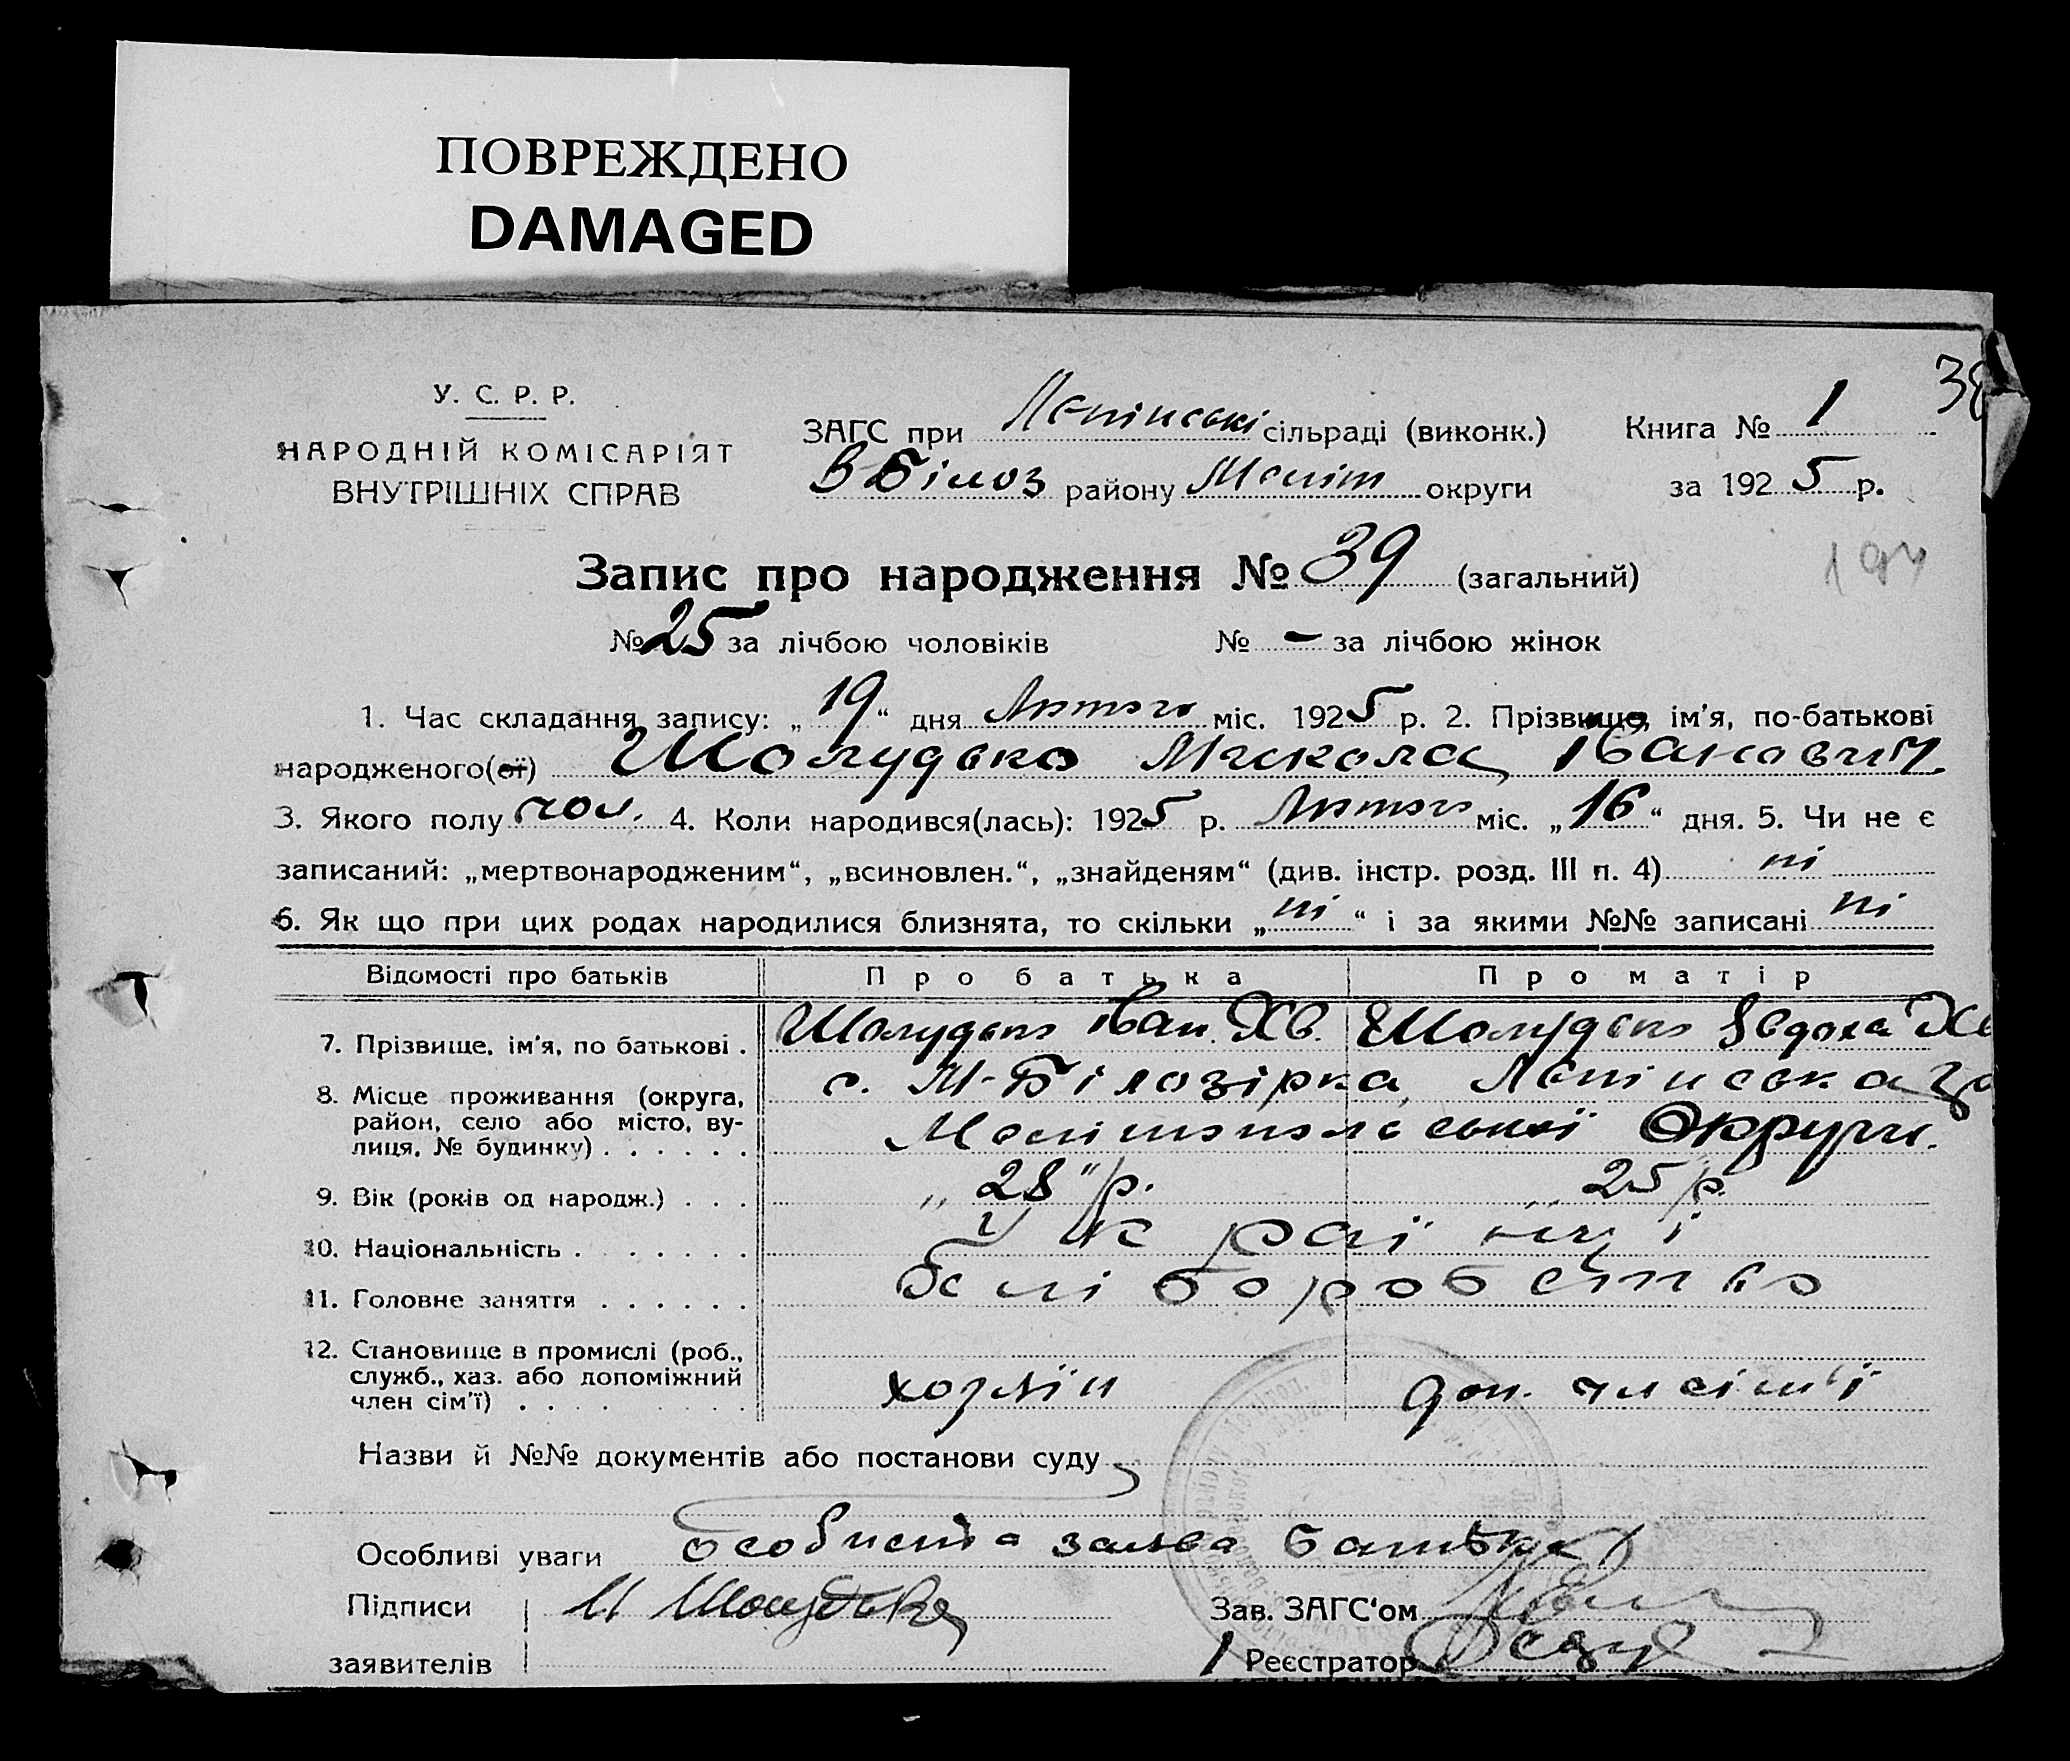 ПОВРЕЖДЕНО
DAMAGED
У. С. Р. Р.
НАРОДНІЙ КОМІСАРІЯТ
ВНУТРІШНІХ СПРАВ
ЗАГС при Лепінські сільраді (виконк.) Книга № 1 38
В Білоз району Меліт округи за 1925 р.
Запис про народження № 39 (загальний)
№ 25 за лічбою чоловіків № - за лічбою жінок
1. Час складання запису: „19“ дня Лютого міс. 1925 р. 2. Прізвище, ім'я, по-батькові
народженого(ої) Шолудько Микола Іванович
3. Якого полу чол. 4. Коли народився(лась): 1925 р. Лютого міс. „16“ дня. 5. Чи не є
записаний: „мертвонародженим“, „всиновлен.“, „знайденям“ (див. інстр. розд. III п. 4) ні
6. Як що при цих родах народилися близнята, то скільки „ні“ і за якими №№ записані ні
Відомості про батьків Про батька Про матір
7. Прізвище, ім'я, по батькові . Шолудько Іван Хв. Шолудько Явдоха
8. Місце проживання (округа, с. М-Білозірка, Лепінська
район, село або місто, ву- Мелітопольської Округи.
лиця, № будинку) . . . . . .
9. Вік (років од народж.) . . . „28“ р. 25 р.
10. Національність . . . . . . . Українці
11. Головне заняття . . . . . . хліборобство
12. Становище в промислі (роб.,
служб., хаз. або допоміжний хозяїн доп. чл сім'ї
член сім'ї) . . . . . . . .
Назви й №№ документів або постанови суду
Особливі уваги особиста заява батька
Підписи И Шолудько Зав. ЗАГС'ом
заявителів Реєстратор